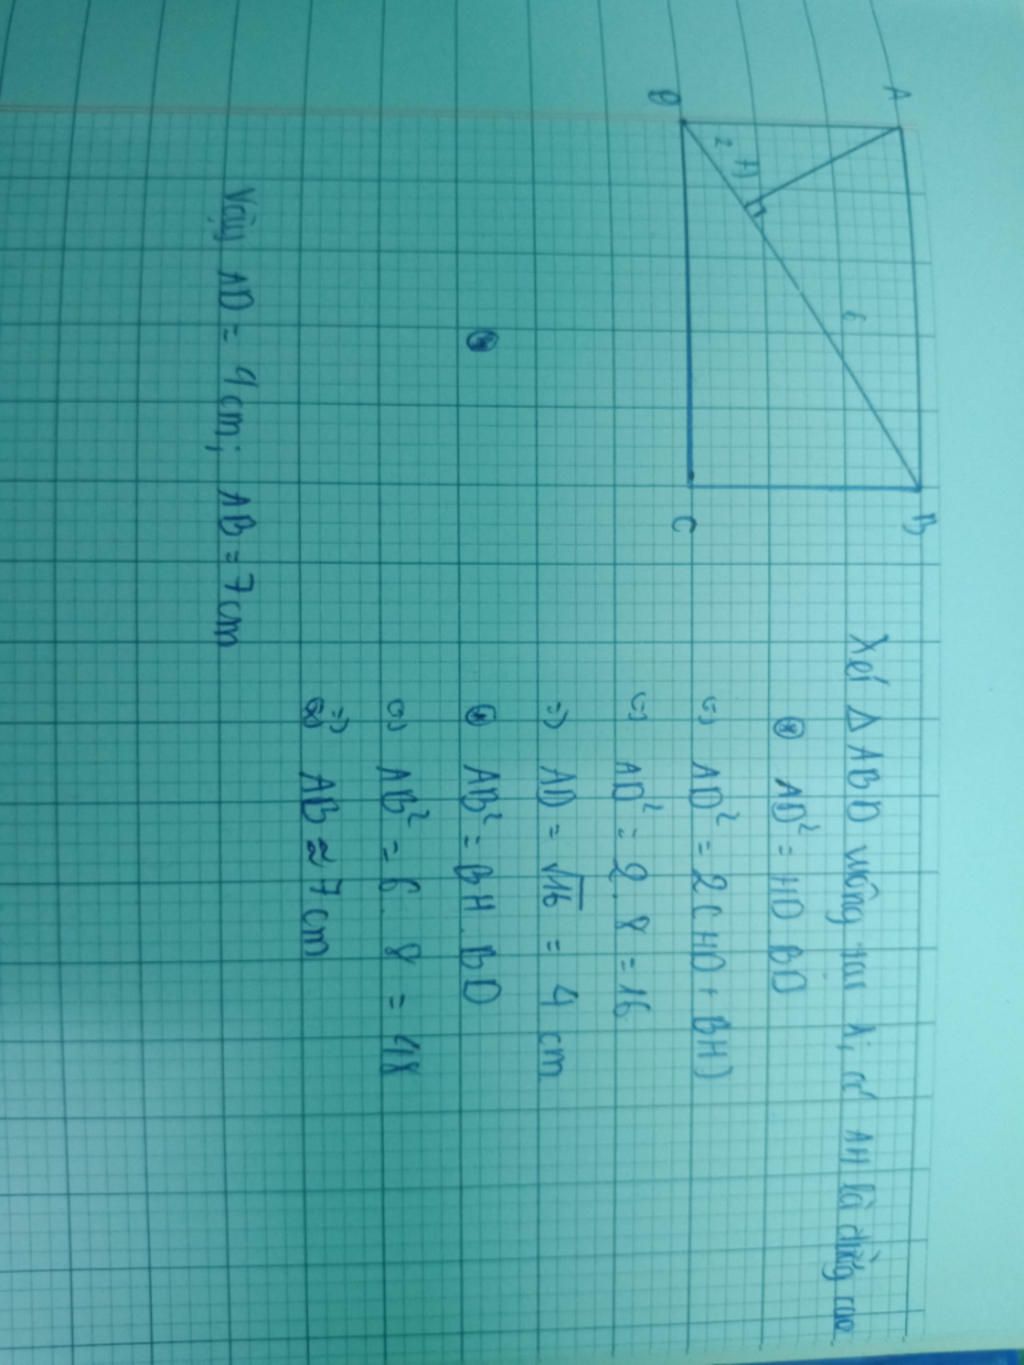 A
B
D
C
H
2
6
Xét Δ ABD vuông tại A, có AH là đường cao
⊛ AD² = HD BD
⇔ AD² = 2(HD + BH)
⇔ AD² = 2.8 = 16
⇒ AD = √16 = 4 cm
⊛ AB² = BH.BD
⇔ AB² = 6.8 = 48
⇒ AB ≈ 7 cm
Vậy AD = 4cm; AB = 7cm